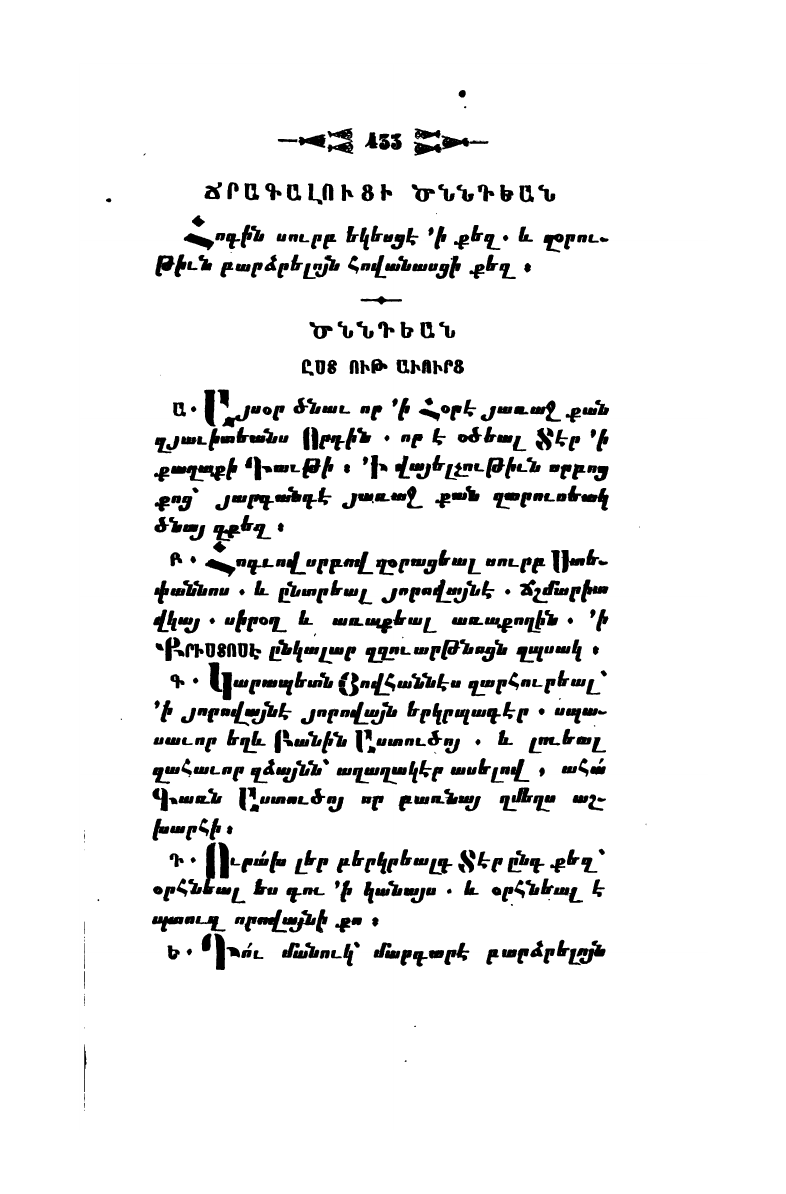 433
ՃՐԱԳԱԼՈՒՑԻ ԾՆՆԴԵԱՆ
Հոգին սուրբ եկեսցէ ՚ի քեզ. և զօրու-
թիւն բարձրելոյն հովանասցի քեզ ։
ԾՆՆԴԵԱՆ
ԸՍՏ ՈՒԹ ԱՒՈՒՐՑ
Ա. Այսօր ծնաւ որ ՚ի Հօրէ յառաջ քան
զյաւիտեանս Որդին . որ է օծեալ Տէր ՚ի
քաղաքի Դաւթի ։ ՚Ի վայելչութիւն սրբոց
քոց՝ յարգանդէ յառաջ քան զարուսեակ
ծնայ զքեզ ։
Բ . Հոգւով սրբով զօրացեալ սուրբ Ստե-
փաննոս . և ընտրեալ յորովայնէ . ճշմարիտ
վկայ . սիրօղ և առաքեալ առաքողին . ՚ի
ՔՐԻՍՏՈՍԷ ընկալար զզուարթնոցն զպսակ ։
Գ . Կարապետն Յովհաննէս զարհուրեալ՝
՚ի յորովայնէ յորովայն երկրպագէր . սպա-
սաւոր եղև Բանին Աստուծոյ . և լուեալ
զահաւոր զձայնն՝ աղաղակէր ասելով , ահա՛
Գառն Աստուծոյ որ բառնայ զմեղս աշ-
խարհի ։
Դ . Ուրա՛խ լեր բերկրեալդ Տէր ընդ քեզ՝
օրհնեալ ես դու ՚ի կանայս . և օրհնեալ է
պտուղ որովայնի քո ։
Ե . Դո՛ւ մանուկ՝ մարգարէ բարձրելոյն